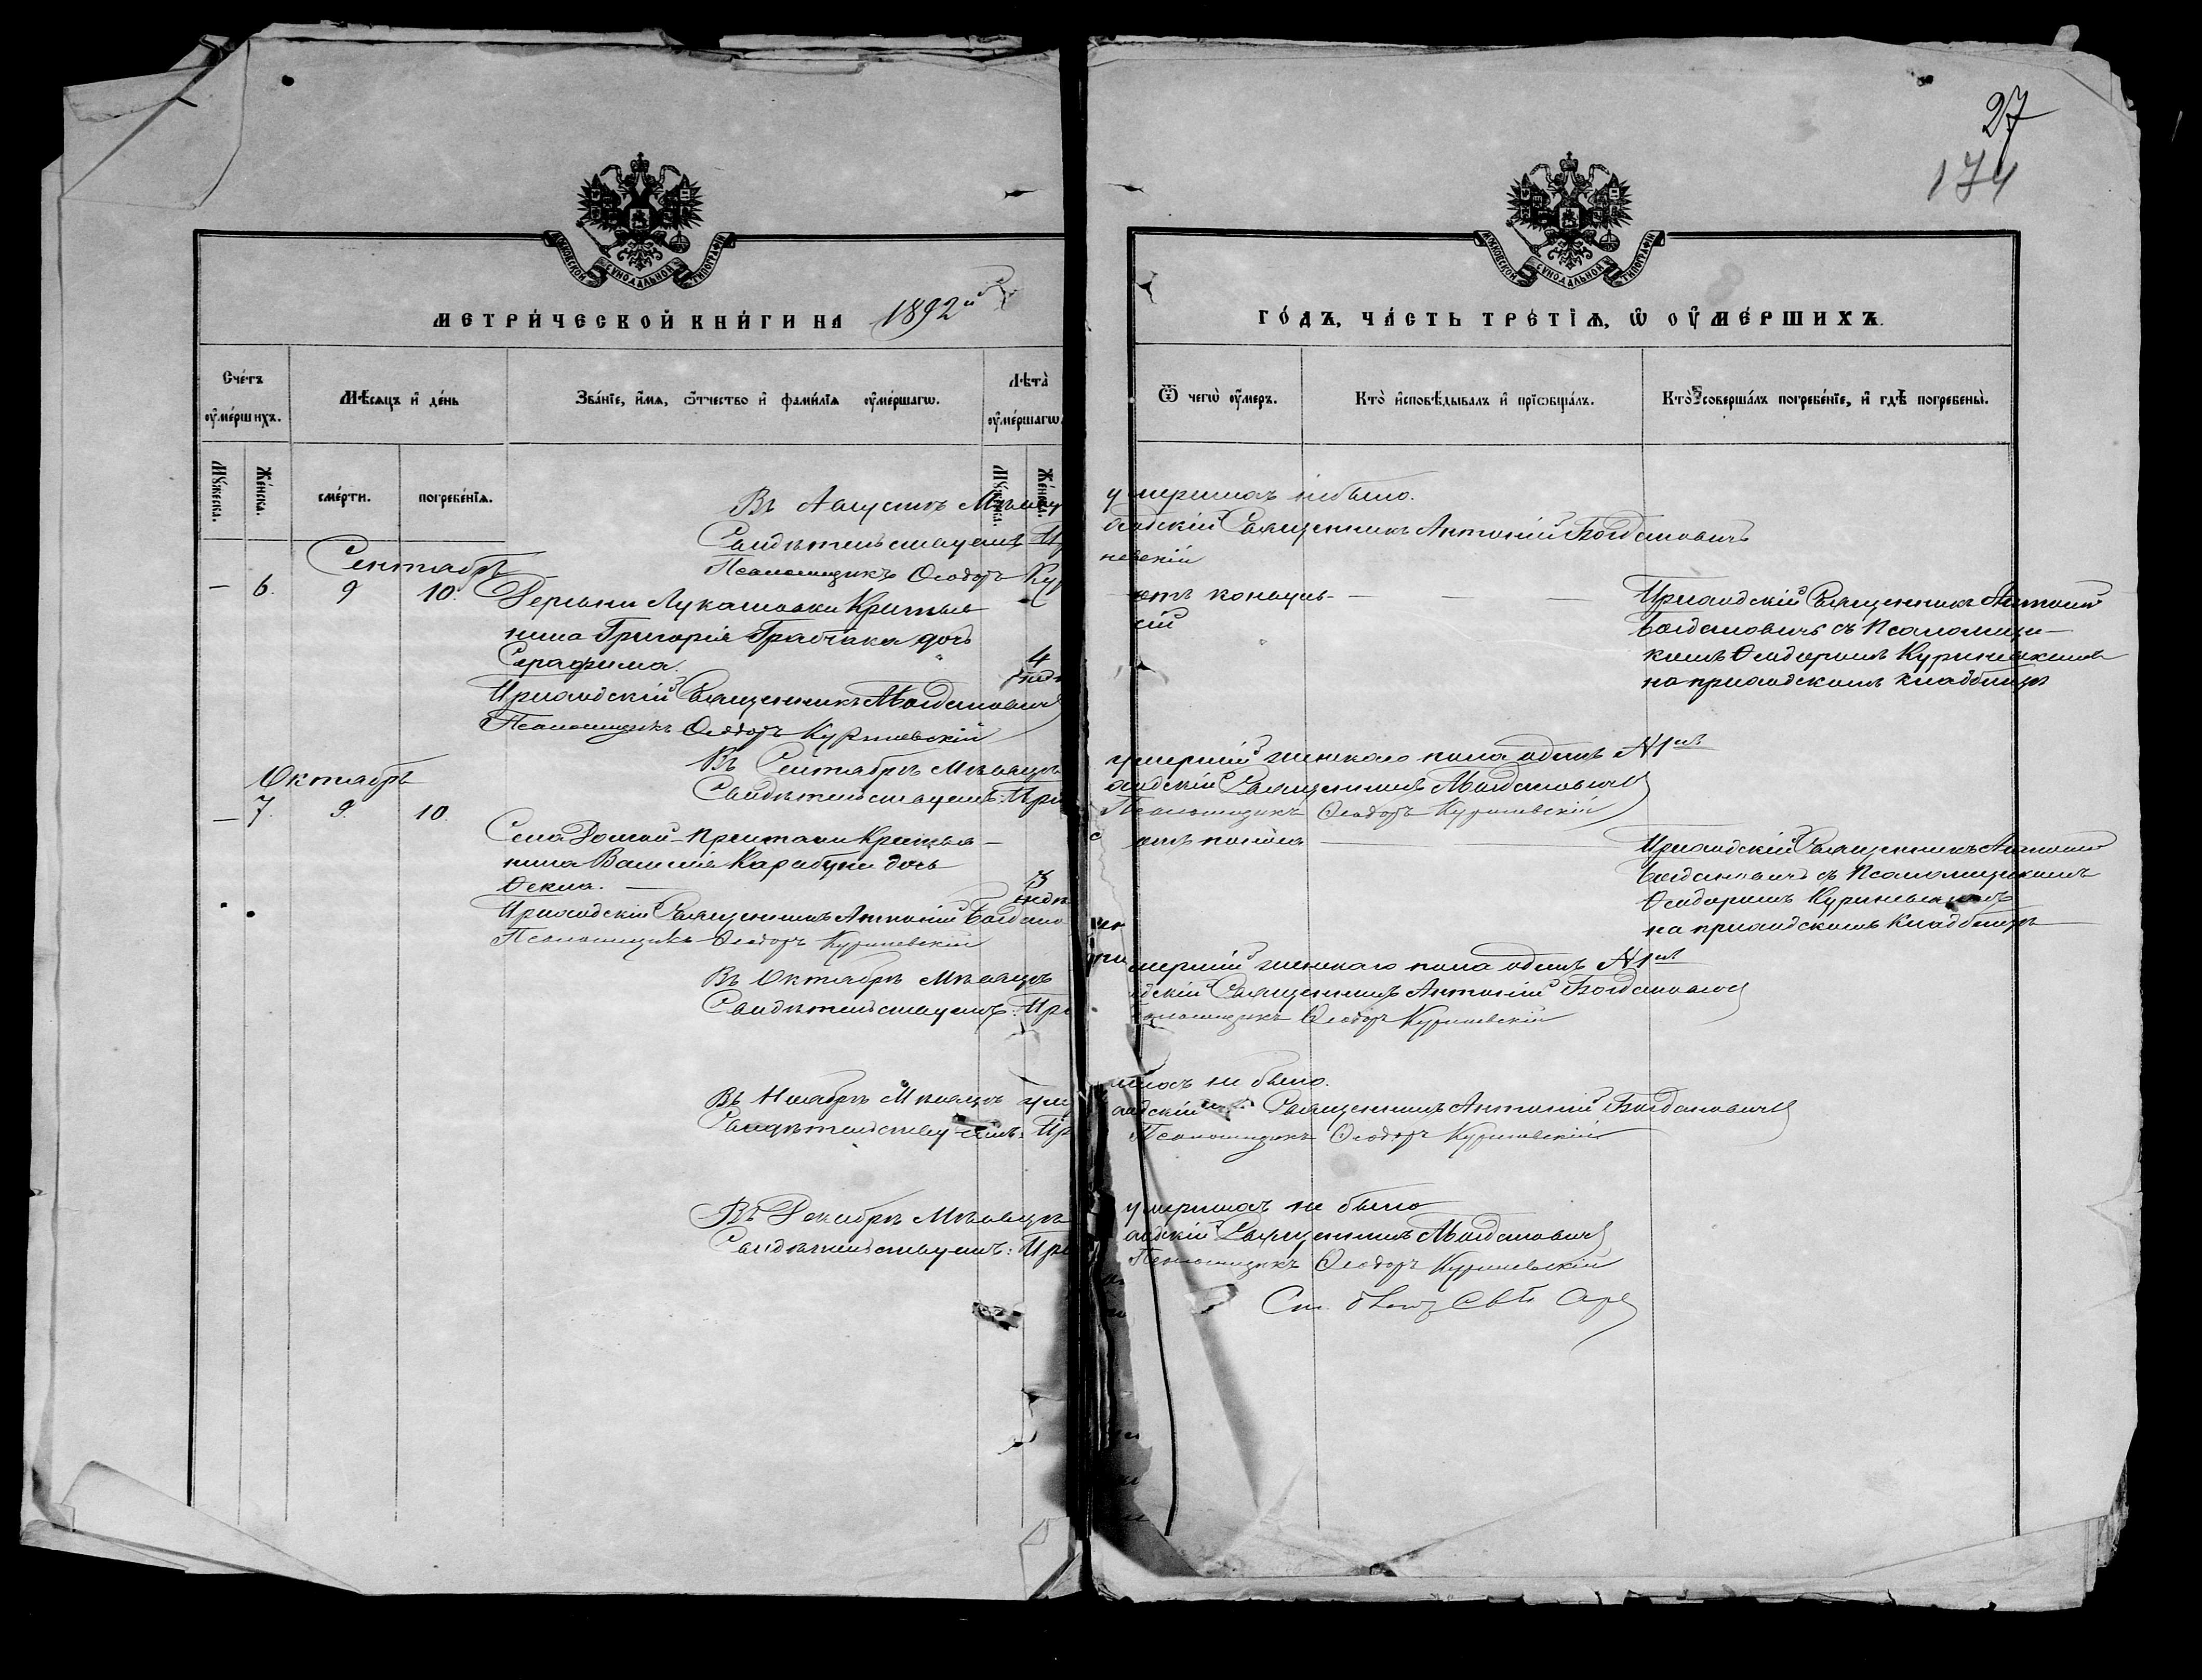 27
174
МОСКОВСКОЙ СѴНОДАЛЬНОЙ ТИПОГРАФІИ
МЕТРИ́ЧЕСКОЙ КНИ́ГИ НА 1892й
Сче́тъ ᲂу҆ме́ршихъ.
Мѣ́сяцъ и҆ де́нь
Зва́нїе, и҆́мя, ѻ҆́тчество и҆ фами́лїя ᲂу҆ме́ршагѡ.
Лѣта̀ ᲂу҆ме́ршагѡ.
Мꙋ́жеска.
Же́нска.
сме́рти.
погребе́нїя.
Мꙋ́жеска.
Же́нска.
Въ Августѣ Мѣсяц
Свидѣтельствуемъ
Псаломщикъ Ѳеодоръ Кур
Сентябрь
— 6. 9 10. Деревни Лукашовки Крестья
нина Григорія Грабчака дочь
Серафима. 4 нед
Приходскій Священникъ АБогдановичъ
Псаломщикъ Ѳеодоръ Куриневскій
Въ Сентябрѣ Мѣсяцѣ
Свидѣтельствуемъ: При
Октябрь
— 7. 9. 10. Села
Пристани Крестья-
нина Василія Карабули дочь
Ѳекла. — 3 нед
Приходскій Священникъ Антоній Богдано
Псаломщикъ Ѳеодоръ Куриневскій
Въ Октябрѣ Мѣсяцѣ
Свидѣтельствуемъ: При
Въ Ноябрѣ Мѣсяцѣ уме
Свидѣтельствуемъ: Пр
Въ Декабрѣ Мѣсяцѣ
Свидѣтельствуемъ: При
МОСКОВСКОЙ СѴНОДАЛЬНОЙ ТИПОГРАФІИ
ГО́ДЪ, ЧА́СТЬ ТРЕ́ТІЯ, Ѡ ОУ҆МЕ́РШИХЪ.
Ѿ чегѡ̀ ᲂу҆́меръ.
Кто̀ и҆сповѣ́дывалъ и҆ прїѡбща́лъ.
Кто̀ соверша́лъ погребе́нїе, и҆ гдѣ̀ погребены̀.
умершихъ небыло.
одскій Священникъ Антоній Богдановичъ
невскій
отъ конвуль-
сій
Приходскій Священникъ Антоній
Богдановичъ съ Псаломщи-
комъ Ѳеодоромъ Куриневскимъ
на приходскомъ кладбищѣ
умершій женскаго пола одинъ №1й
одскій Священникъ АБогдановичъ
Псаломщикъ Ѳеодоръ Куриневскій
отъ поноса
Приходскій Священникъ Антоній
Богдановичъ съ Псаломщикомъ
Ѳеодоромъ Куриневскимъ
на приходскомъ кладбищѣ
мершій женскаго пола одинъ №1й
дскій Священникъ Антоній Богдановичъ
саломщикъ Ѳеодоръ Куриневскій
шихъ не было.
одскій Священникъ Антоній Богдановичъ
Псаломщикъ Ѳеодоръ Куриневскій
умершихъ не было
одскій Священникъ АБогдановичъ
Псаломщикъ Ѳеодоръ Куриневскій